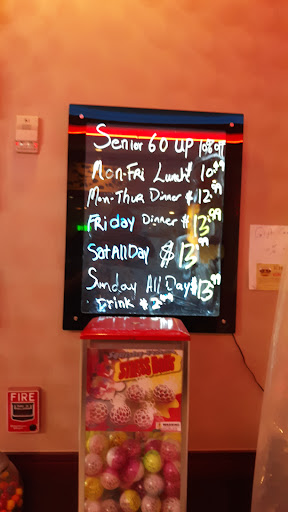 Senior 60 up 10% off
Mon-Fri Lunch 10.99
Mon-Thur Dinner $12.99
Friday Dinner $13.99
Sat All Day $13.99
Sunday All Day $13.99
Drink $2.99
FIRE